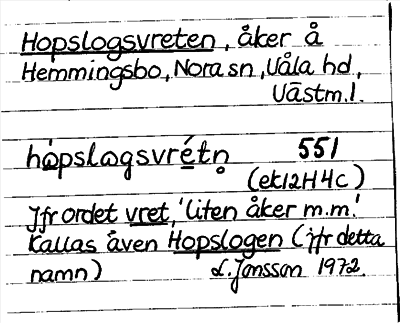 Hopslogsvreten, åker å
Hemmingsbo, Nora sn, Våla hd,
Västm.l.
hòpslogsvrétn̥ 551
(ek12H4c)
Jfr ordet vret, 'liten åker m.m.'
Kallas även Hopslogen (jfr detta
namn) L. Jonsson 1972.